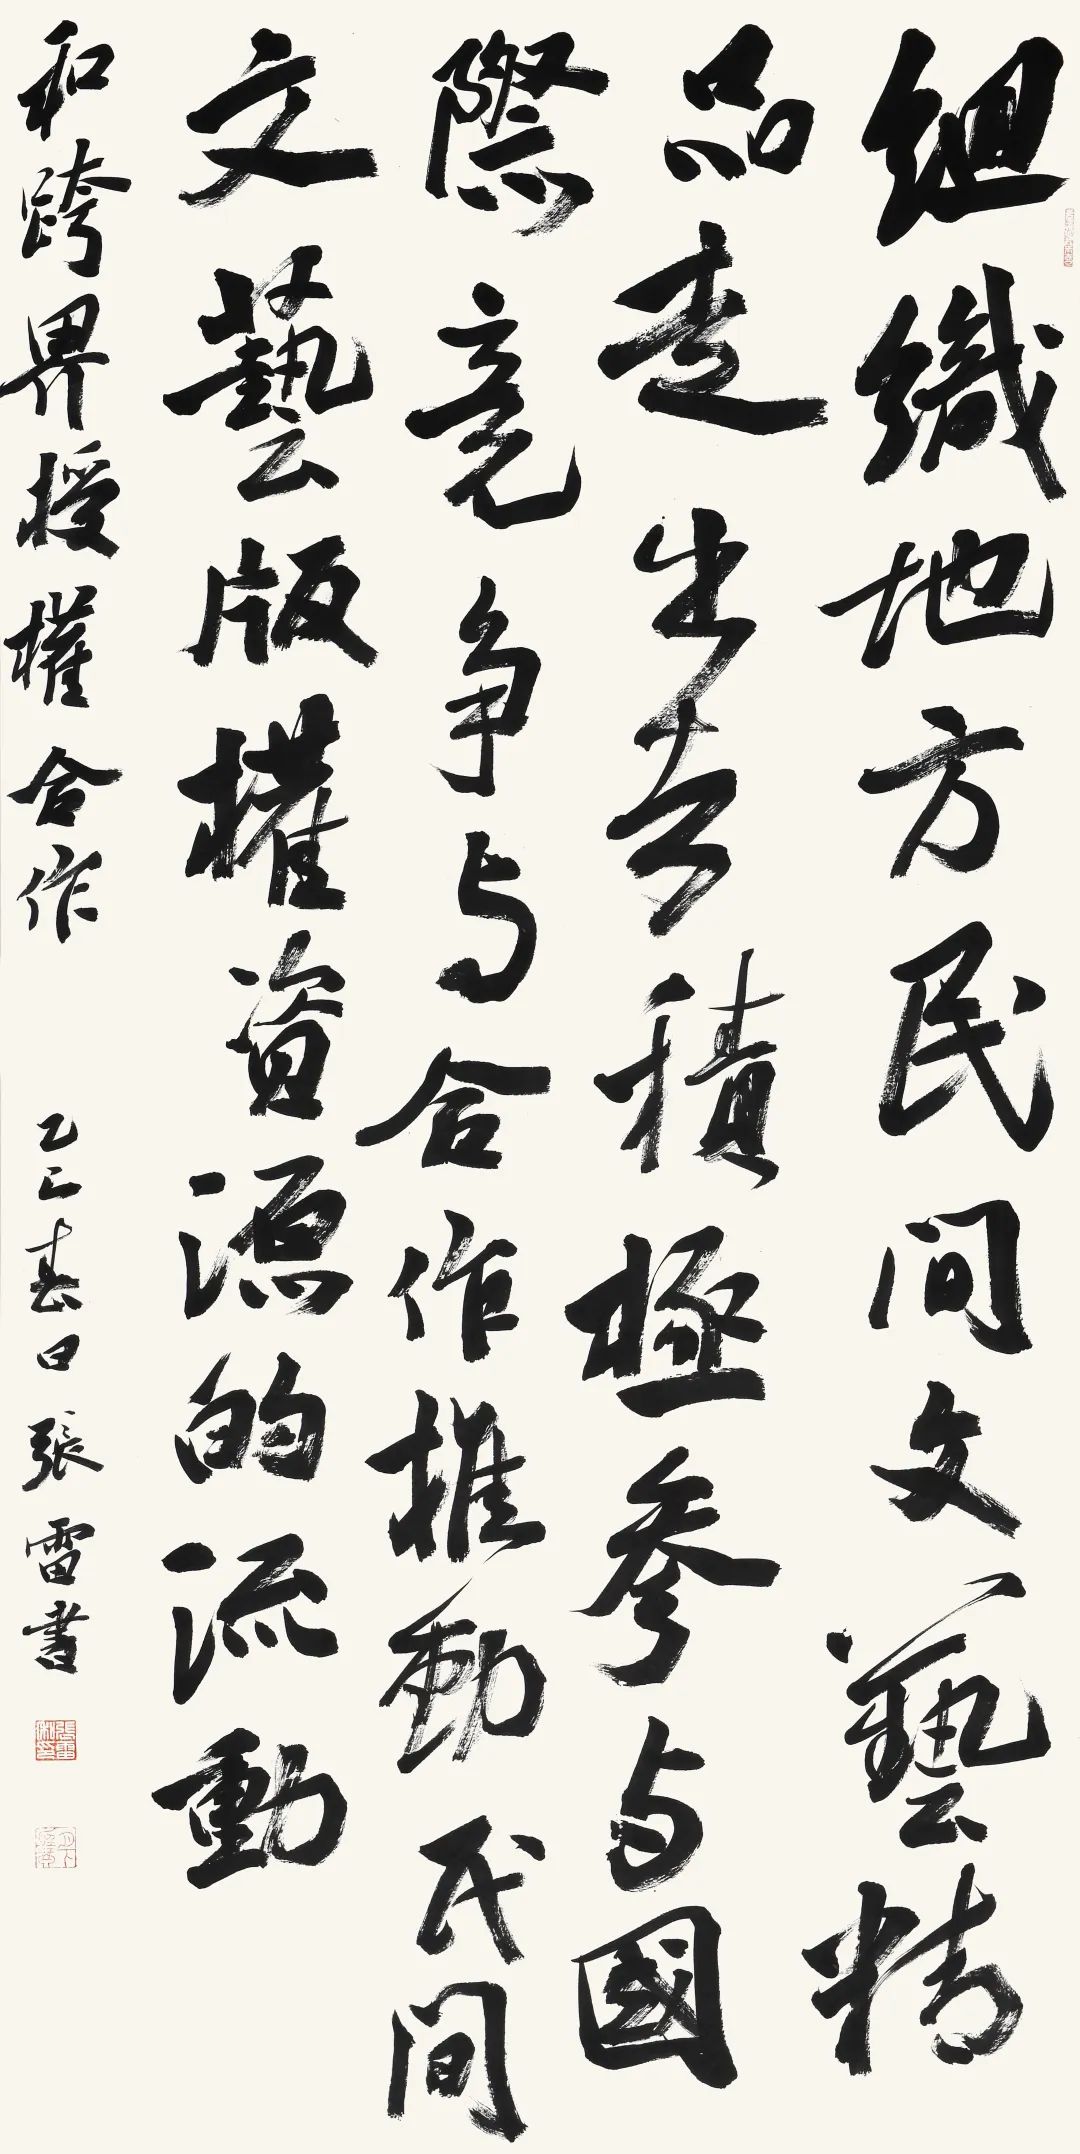 組織地方民间文藝精
品走出去積極參与國
際竞争与合作推動民间
文藝版權資源的流動
和跨界授權合作 乙巳春日 張雷書